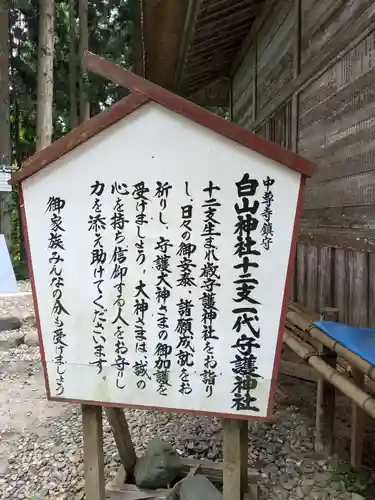 中尊寺鎮守
白山神社十二支一代守護神社
十二支生まれ歳守護神社を、お詣り
し、日々の御安泰、諸願成就をお
祈りし、守護大神さまの御加護を
受けましょう。大神さまは、誠の
心を持ち信仰する人をお守りし
力を添え助けてくださいます。
御家族みんなの分も受けましょう